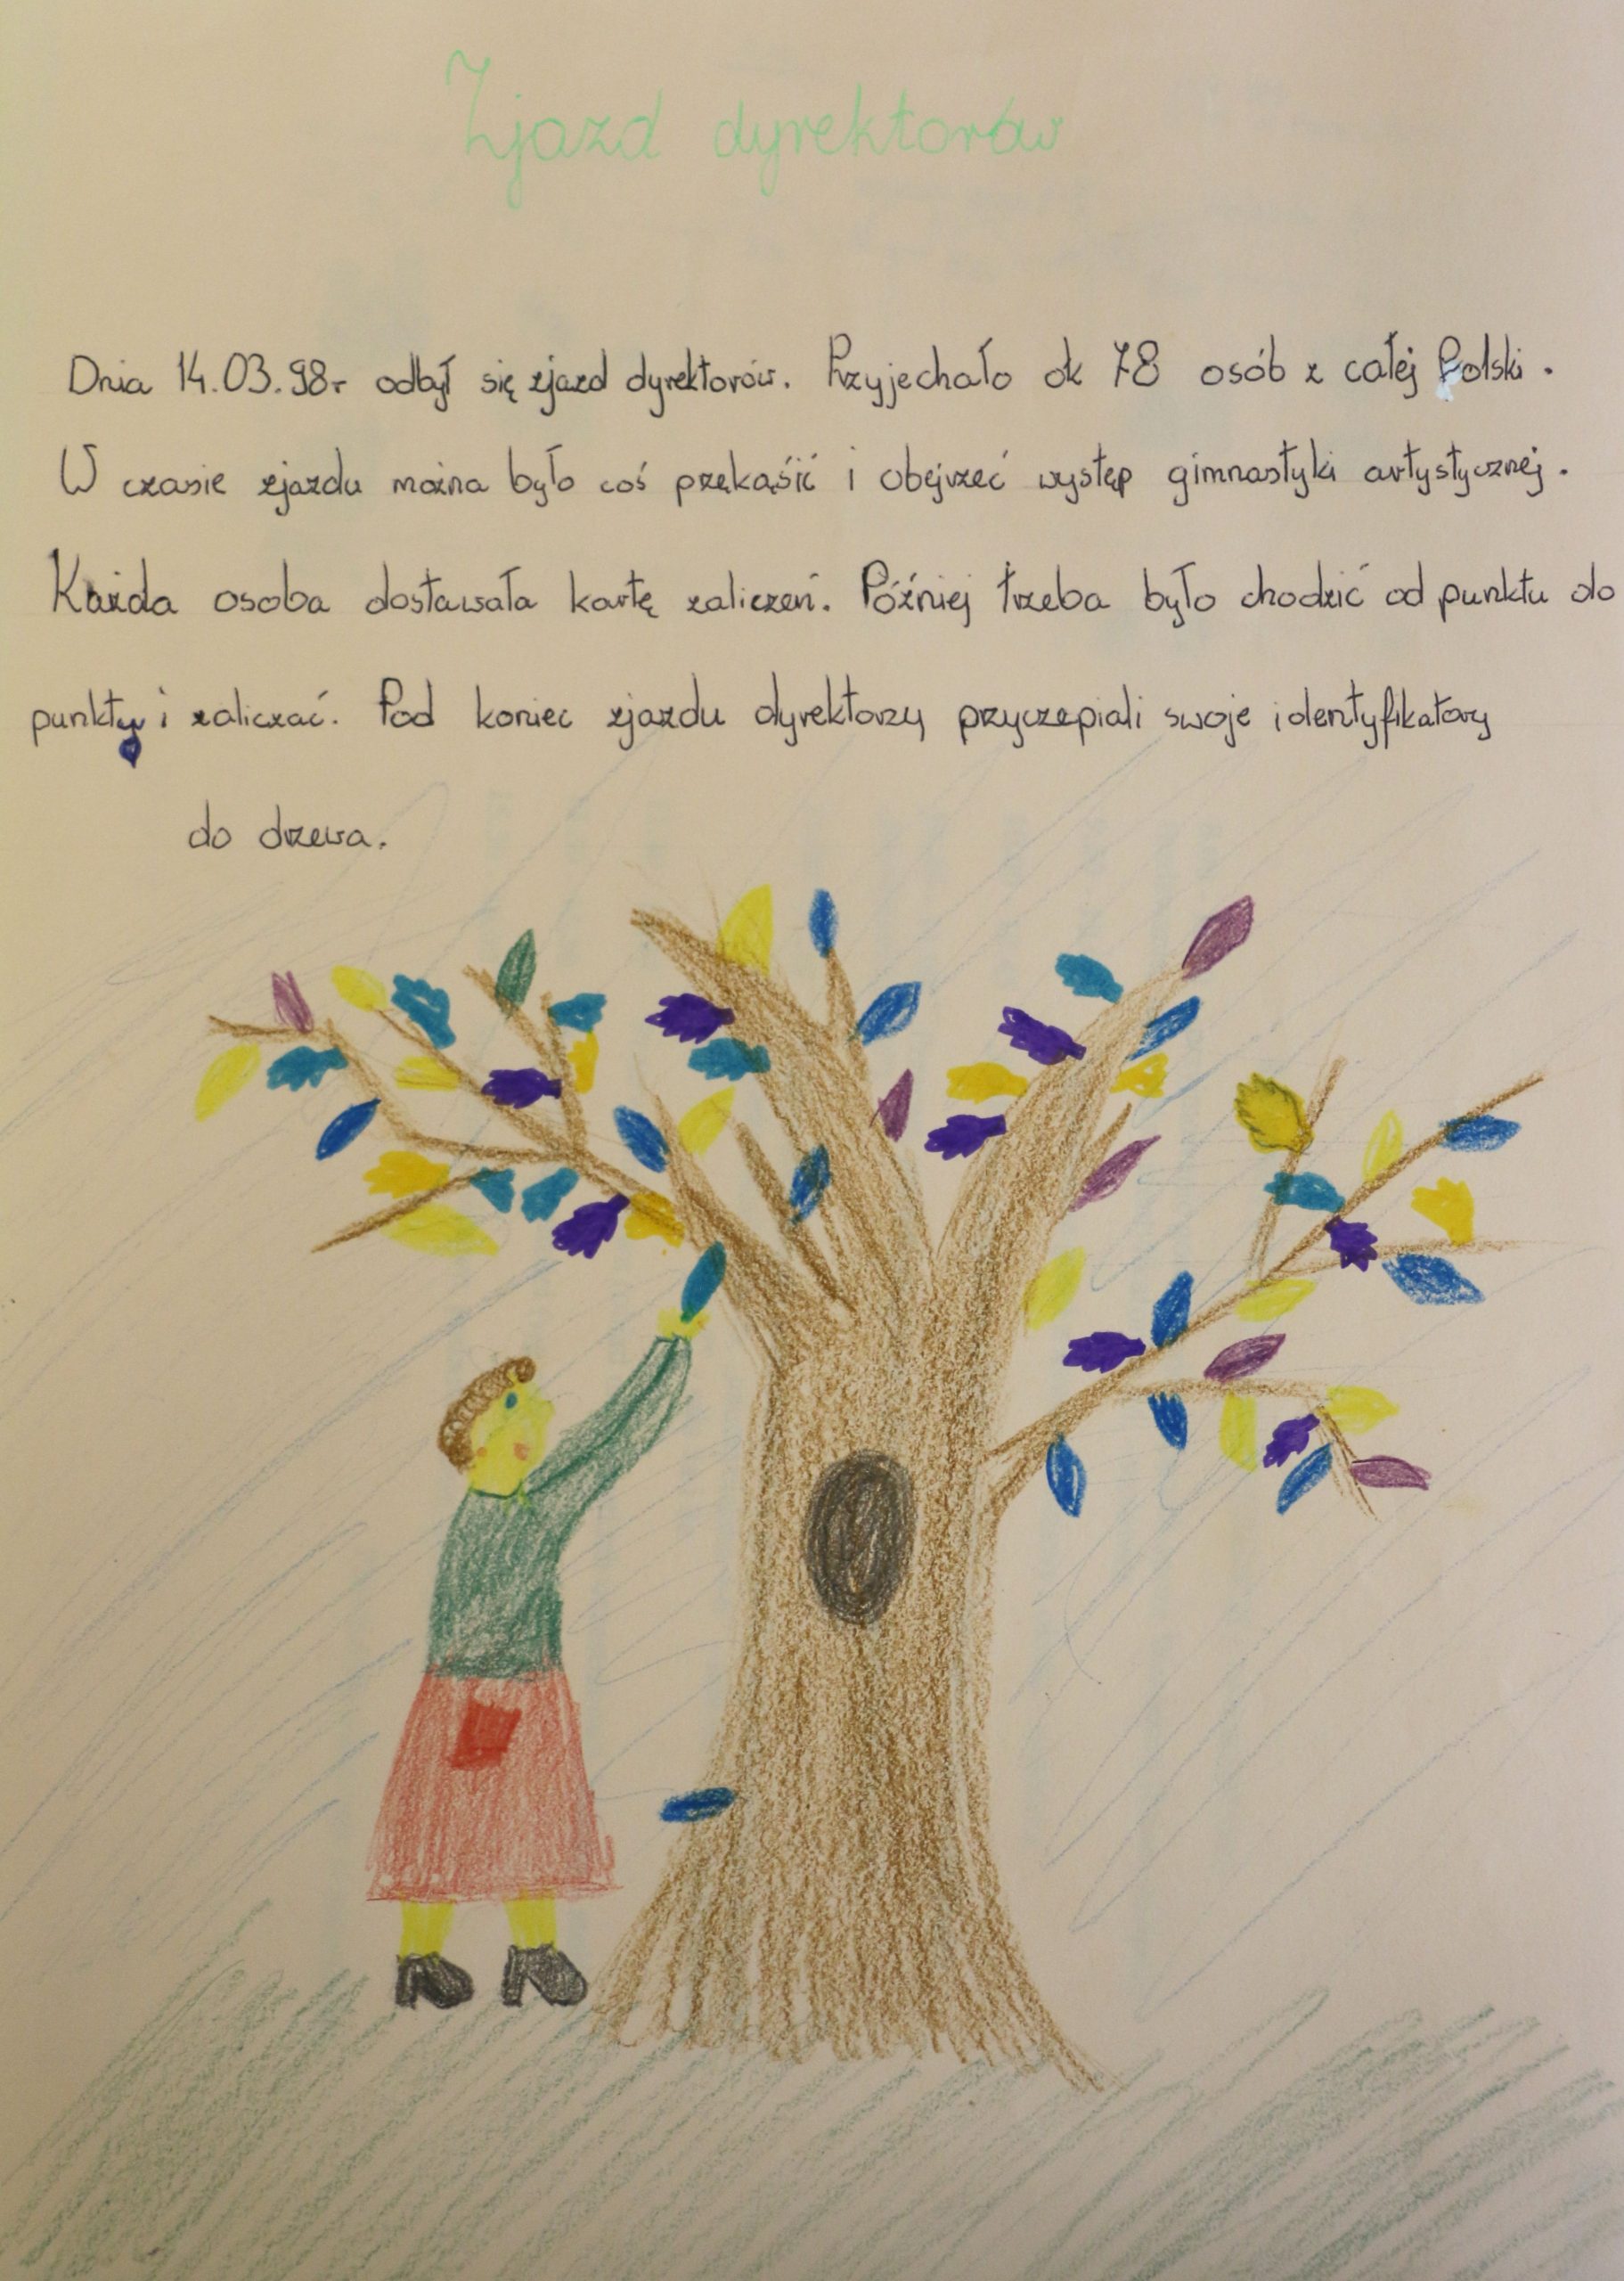 Zjazd dyrektorów
Dnia 14.03.98r odbył się zjazd dyrektorów. Przyjechało ok 78 osób z całej Polski.
W czasie zjazdu można było coś przekąśić i obejrzeć występ gimnastyki artystycznej.
Każda osoba dostawała kartę zaliczeń. Później trzeba było chodzić od punktu do
punktu i zaliczać. Pod koniec zjazdu dyrektorzy przyczepiali swoje identyfikatory
do drzewa.